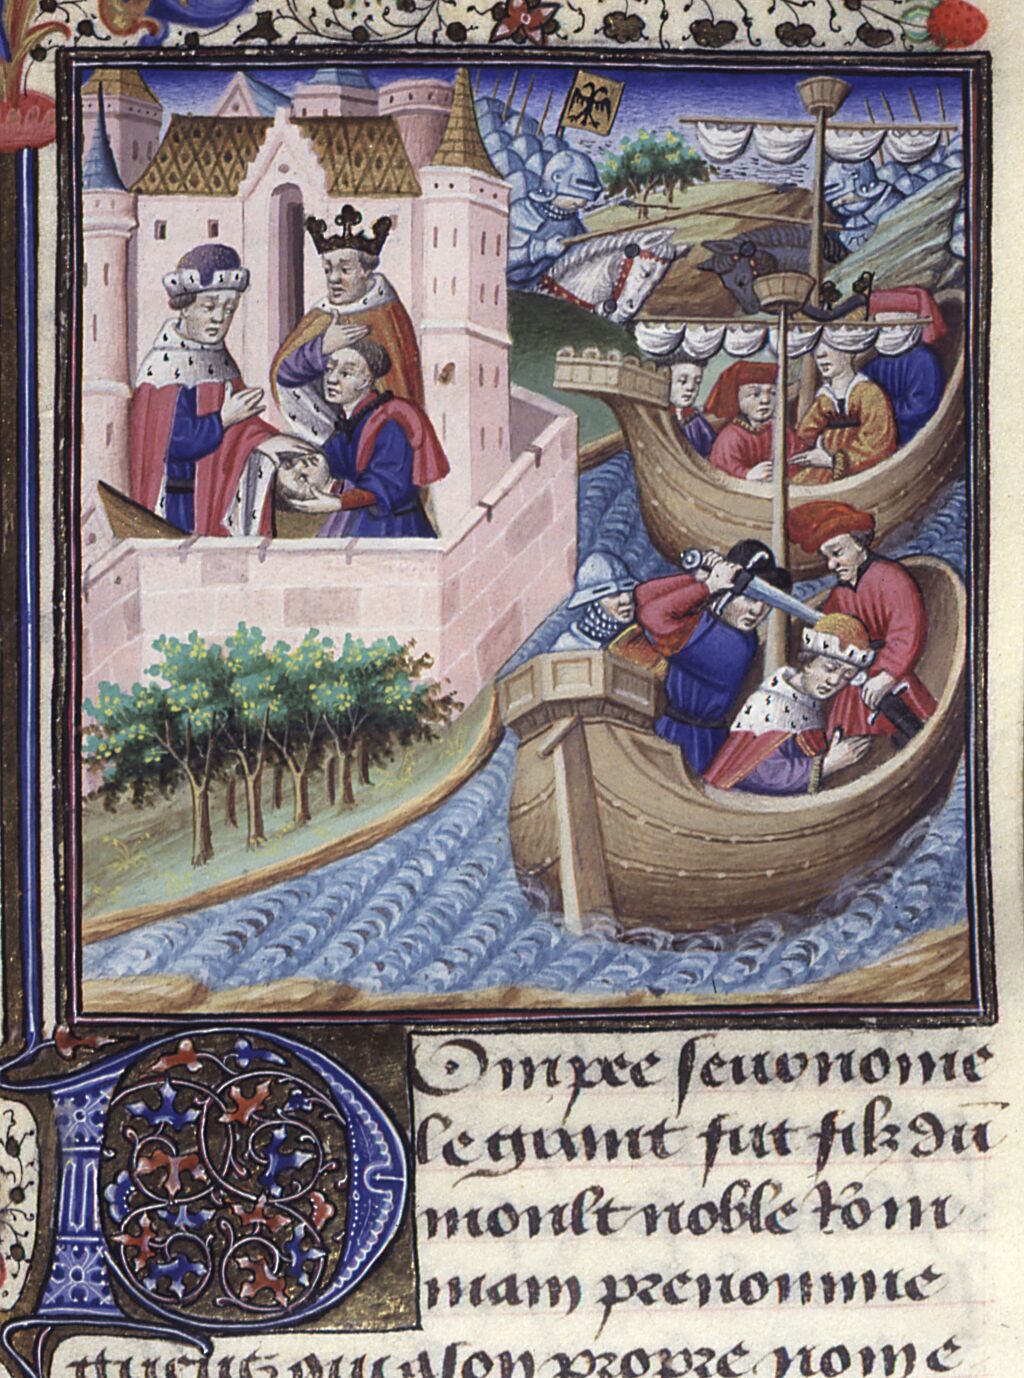 Pompee seurnome
le grant fut filz du
moult noble Rom
main prenomme
gneus qui a son propre nome